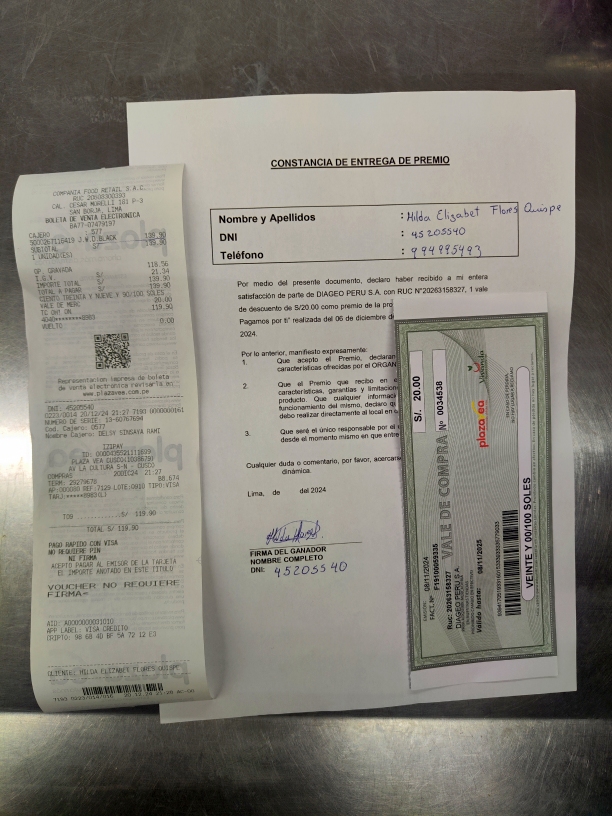 COMPANIA FOOD RETAIL S.A.C.
RUC 20608300393
CAL. CESAR MORELLI 181 P-3
SAN BORJA, LIMA
BOLETA DE VENTA ELECTRONICA
BA77-07479197
CAJERO : 577
5000267116419 J.W.D.BLACK 139.90
SUBTOTAL S/ 139.90
(1 UNIDADES)
OP. GRAVADA 118.56
I.G.V. S/ 21.34
IMPORTE TOTAL S/ 139.90
TOTAL A PAGAR S/ 139.90
CIENTO TREINTA Y NUEVE Y 90/100 SOLES
VALE DE MERC 20.00
TC OH! ON 119.90
VUELTO 0.00
Representacion impresa de boleta
de venta electronica revisarla en
www.plazavea.com.pe
DNI: 45205540
0223/0014 20/12/24 21:27 7193 0000000161
NUMERO DE SERIE:
Cod. Cajero: 0577
Nombre Cajero: DELSY SINSAYA RAMI
IZIPAY
PLAZA VEA CUSCO
AV LA CULTURA S-N - CUSCO
COMPRAS 20DIC24 21:27
TERM: 29279678
S/. 119.90
TOTAL S/ 119.90
PAGO RAPIDO CON VISA
NO REQUIERE PIN
NI FIRMA
ACEPTO PAGAR AL EMISOR DE LA TARJETA
EL IMPORTE ANOTADO EN ESTE TITULO
VOUCHER NO REQUIERE
FIRMA-
AID: A0000000031010
APP LABEL: VISA CREDITO
CLIENTE: HILDA ELIZABET FLORES QUISPE
CONSTANCIA DE ENTREGA DE PREMIO
Nombre y Apellidos : Hilda Elizabet Flores Quispe
DNI : 45205540
Teléfono : 994995493
Por medio del presente documento, declaro haber recibido a mi entera
satisfacción de parte de DIAGEO PERU S.A. con RUC N°20263158327, 1 vale
de descuento de S/20.00 como premio de la pro
Pagamos por ti" realizada del 06 de diciembre de
2024.
Por lo anterior, manifiesto expresamente:
1. Que acepto el Premio, declaran
características ofrecidas por el ORGAN
2. Que el Premio que recibo en e
características, garantías y limitacion
producto. Que cualquier informac
funcionamiento del mismo, declaro q
debo realizar directamente al local en
3. Que seré el único responsable por el
desde el momento mismo en que entre
Cualquier duda o comentario, por favor, acercars
dinámica.
Lima, de del 2024
FIRMA DEL GANADOR
NOMBRE COMPLETO
DNI: 45205540
S/. 20.00
VALE DE COMPRA Nº 0034538
plaza vea
Vivanda
08/11/2024
Ruc: 20263158327
DIAGEO PERU S A
Válido hasta: 08/11/2025
VEINTE Y 00/100 SOLES